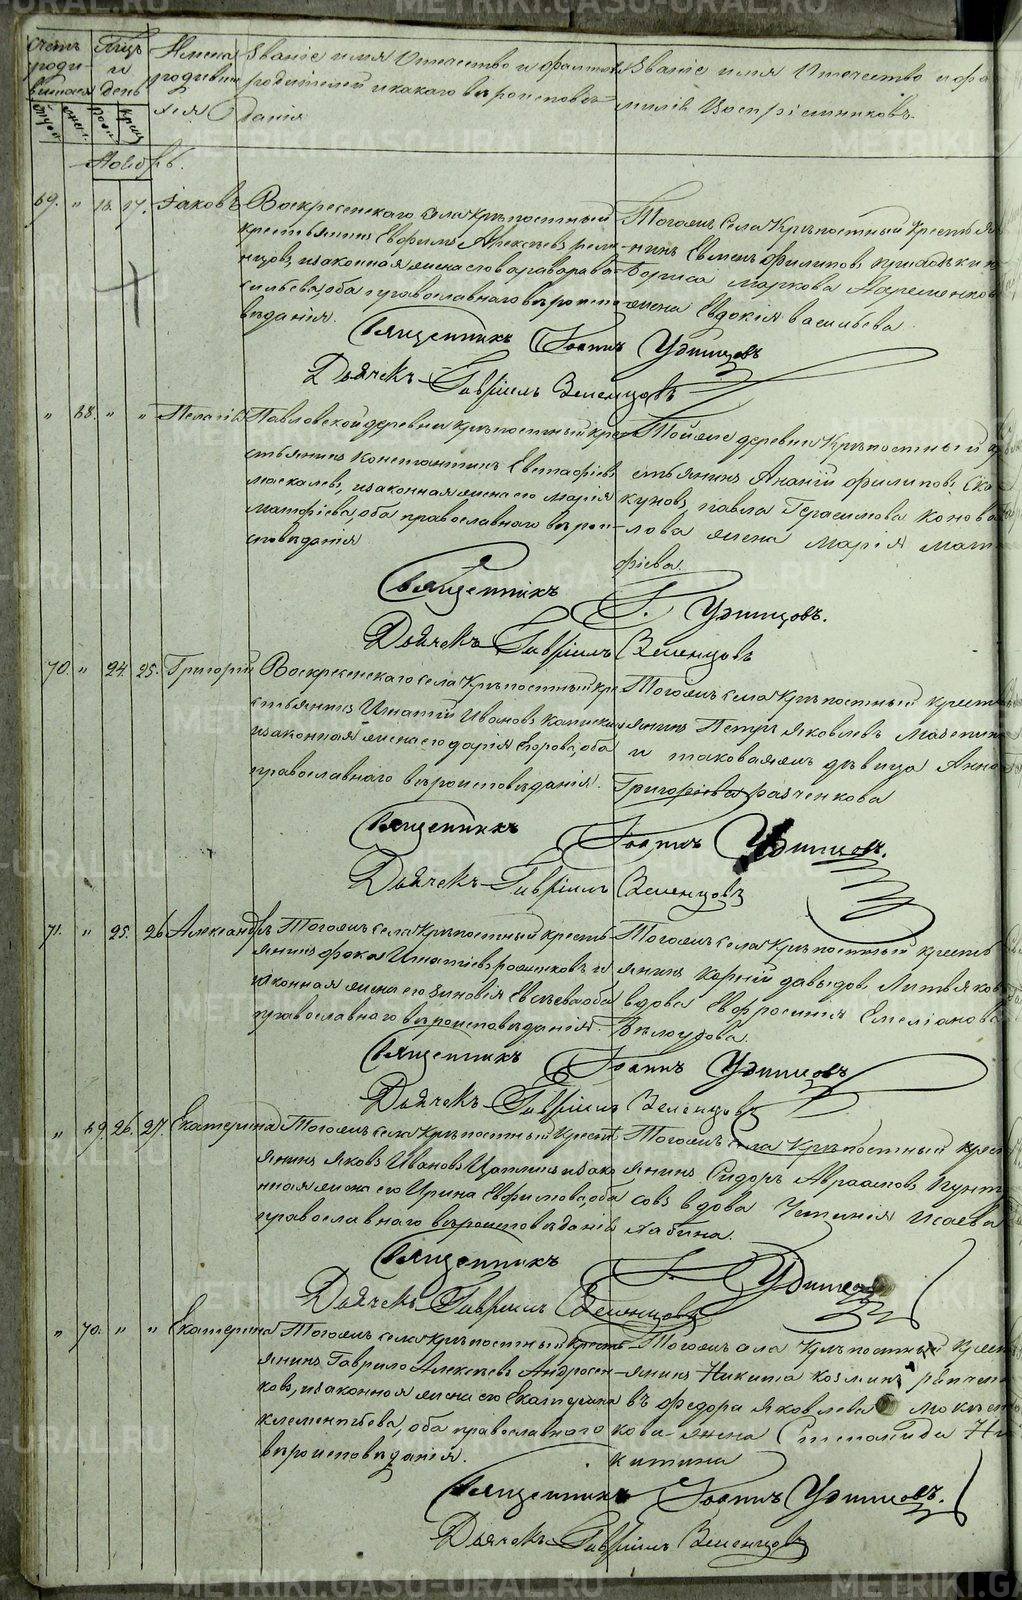 Счетъ родившихся
Мѣсяцъ и день
Имена родившихся
Званіе имя Отчество и фамилія родителей и какого вѣроисповѣданія
Званіе имя Отчество и фамилія Воспріемниковъ
Ноябрь.
69. " 13. 17. Іаковъ
Воскресенскаго села Крѣпостный
крестьянинъ Евфимъ Алексѣевъ
изаконная жена его варвара ва-
сильева, оба православнаго вѣроиспо-
вѣданія.
Тогожъ села Крѣпостный Крестья-
нинъ Евмен филиповъ
Бориса маркова
жена Евдокія васильева
Священникъ Іоаннъ Удинцовъ
Дьячекъ Гавріилъ Зеленцовъ
" 68. " " Пелагія
Павловской деревни крѣпостный кре-
стьянинъ Константинъ Евстафіевъ
маскалевъ, изаконная жена его марія
матфіева, оба православнаго вѣрои-
сповѣданія
Тойже деревни Крѣпостный
стьянинъ Ананій филиповъ Ско-
куновъ, павла Герасимова Конова-
лова жена Марія мат-
фіева.
Священникъ І. Удинцовъ.
Дьячекъ Гавріилъ Зеленцовъ
70. " 24. 25. Григорій
Воскресенскаго села Крѣпостный кре-
стьянинъ Игнатій Ивановъ
изаконная жена его дарія Егорова, оба
православнаго вѣроисповѣданія.
Тогожъ села Крѣпостный крестья-
янинъ Петръ Яковлевъ
и таковаяжъ дѣвица Анна
Григоріева разченкова
Священникъ Іоаннъ Удинцовъ.
Дьячекъ Гавріилъ Зеленцовъ
71. " 25. 26. Александръ
Тогожъ села Крѣпостный кресть-
янинъ фока Игнатіевъ и
законная жена его зиновія Евсѣева оба
православнаго вѣроисповѣданія.
Тогожъ села Крѣпостный кресть-
янинъ Корній давыдовъ Литвяковъ
вдова Евфросинія Емеліанова
Бѣлоусова.
Священникъ Іоаннъ Удинцовъ
Дьячекъ Гавріилъ Зеленцовъ
" 69. 26. 27. Екатерина
Тогожъ села Крѣпостный Кресть-
янинъ Яковъ Ивановъ изако-
нная жена его Ирина Евфимова, оба
православнаго вѣроисповѣданія
Тогожъ села Крѣпостный крес
янинъ Сидоръ Авраамовъ
совъ вдова Устинія Исаева
лабина.
Священникъ І. Удинцовъ
Дьячекъ Гавріилъ Зеленцовъ
" 70. " " Екатерина
Тогожъ села крѣпостный кресть-
янинъ Гаврило Алексѣевъ Андросен-
ковъ, изаконная жена его Екатерина
клементьева, оба православнаго
вѣроисповѣданія.
Тогожъ села Крѣпостный крест
янинъ Никита козминъ
въ федора яковлева
кова жена Степанида Ни-
китина
Священникъ Іоаннъ Удинцовъ.
Дьячекъ Гавріилъ Зеленцовъ
METRIKI.GASO-URAL.RU